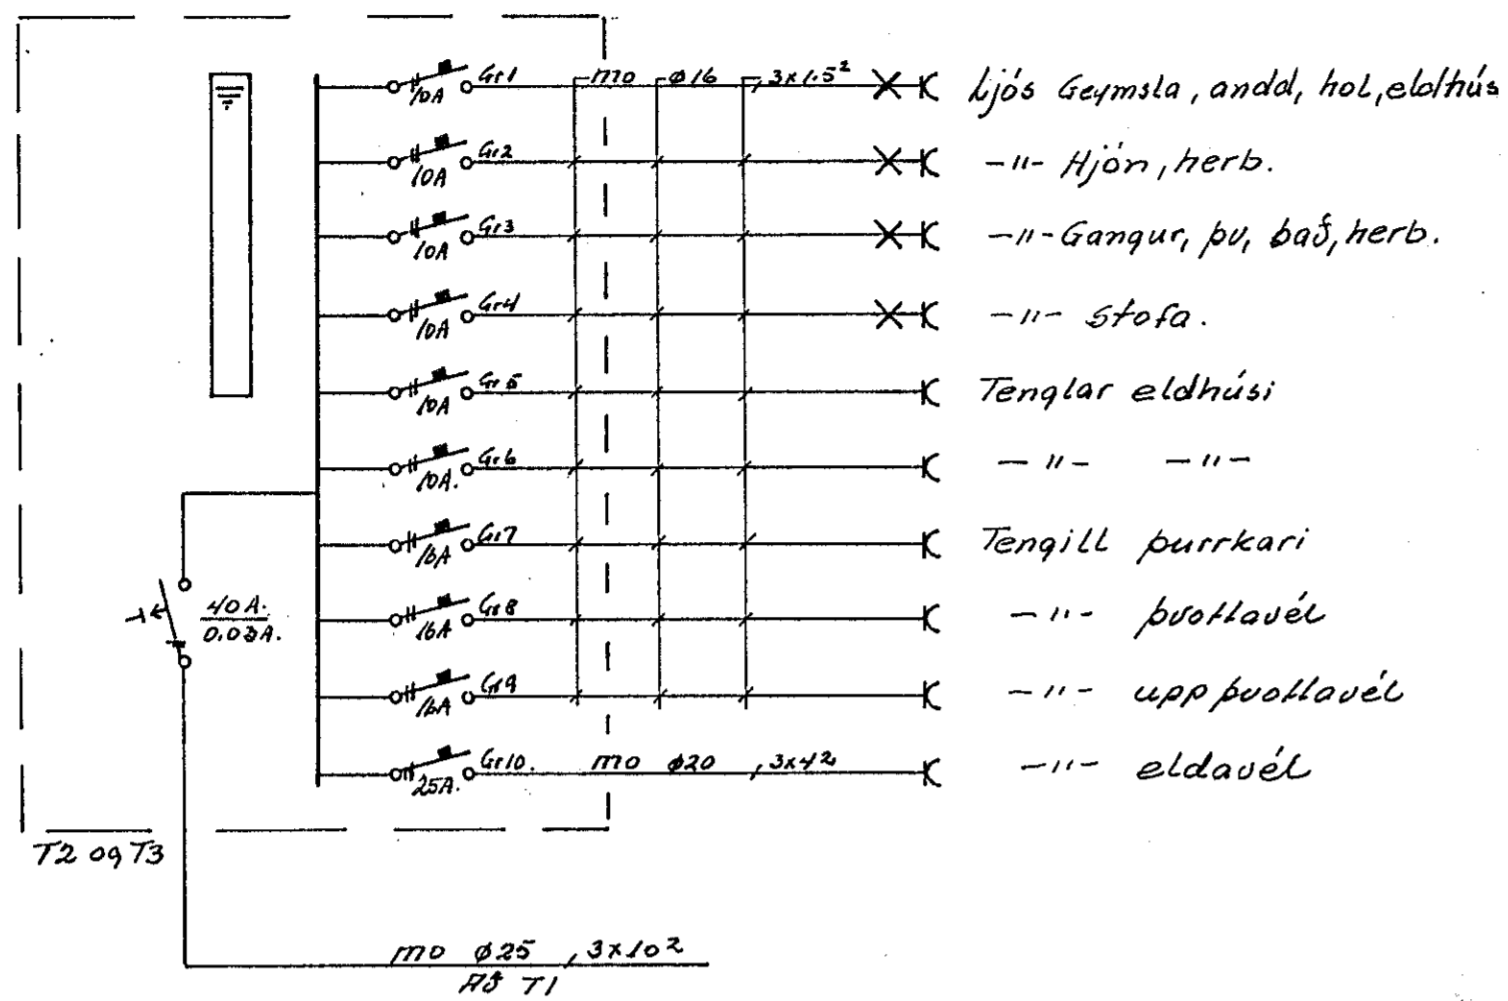 10A Gr1 mo ø16 3x1.5² Ljós Geymsla, andd, hol, eldhús
10A Gr2 -"- Hjón, herb.
10A Gr3 -"- Gangur, þv, bað, herb.
10A Gr4 -"- Stofa.
10A Gr5 Tenglar eldhúsi
10A. Gr6 -"- -"-
16A Gr7 Tengill þurrkari
16A Gr8 -"- þvottavél
16A Gr9 -"- uppþvottavél
25A. Gr10. mo ø20 3x4² -"- eldavél
40A.
0.03A.
T2 og T3
mo ø25 3x10²
Að T1